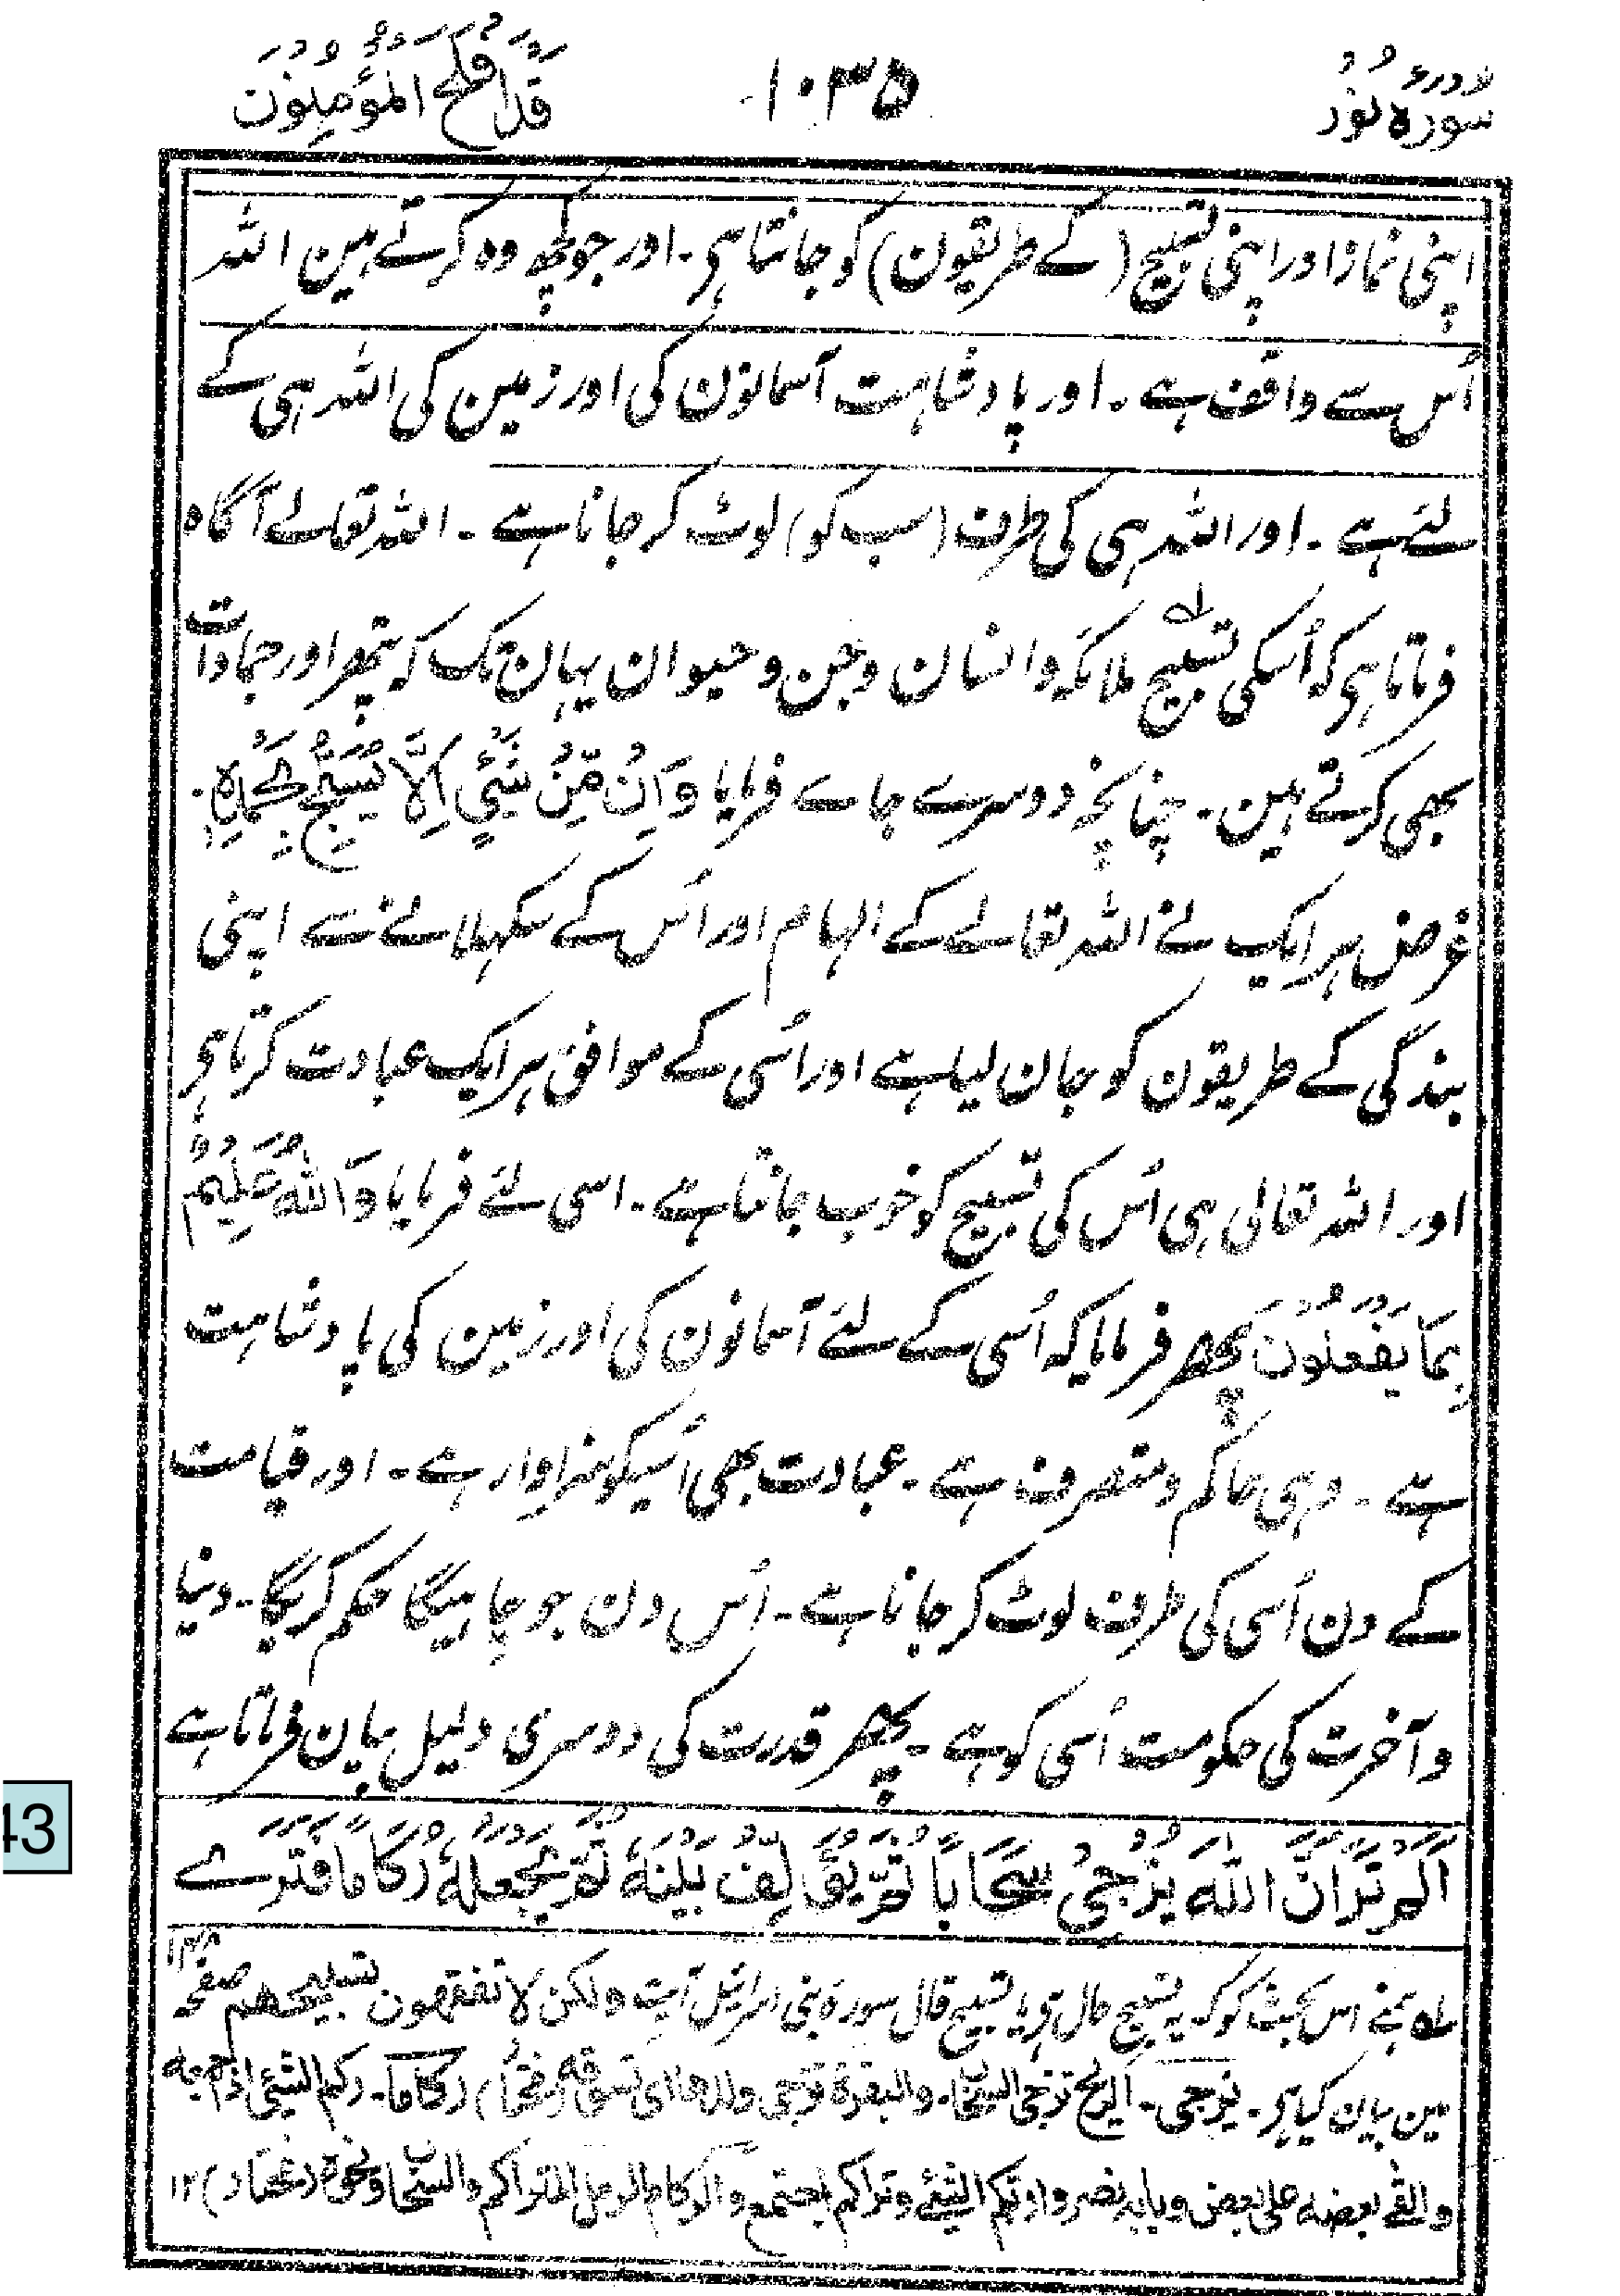 سورہ نُور ۱۰۳۵ قَدْ اَفْلَحَ الْمُؤْمِنُوْنَ
اپنی نماز اور اپنی تسبیح (کے طریقون) کو جانتا ہی۔ اور جو کچھ وہ کرتے ہین اللہ
اُس سے واقف ہے۔ اور پادشاہت آسمانون کی اور زمین کی اللہ ہی کے
لئے ہے۔ اور اللہ ہی کی طرف (سب کو) لوٹ کر جانا ہے۔ اللہ تعالےٰ آگاہ
فرماتا ہی کہ اُسکی تسبیح لہ ملائکہ وانسان وجن وحیوان یہان تک کہ پتھر اور جمادات
بھی کرتے ہین۔ چنانچہ دوسرے جاے فرمایا وَاِنْ مِّنْ شَیْءٍ اِلَّا یُسَبِّحُ بِحَمْدِہٖ۔
غرض ہر ایک نے اللہ تعالےٰ کے الہام اور اُس کے سکہلانے سے اپنی
بندگی کے طریقون کو جان لیا ہے اور اُسی کے موافق ہر ایک عبادت کرتا ہی
اور اللہ تعالی ہی اُس کی تسبیح کو خوب جانتا ہے۔ اسی لئے فرمایا وَاللّٰہُ عَلِیْمٌ
بِمَا یَفْعَلُوْنَ پھر فرمایا کہ اُسی کے لئے آسمانون کی اور زمین کی پادشاہت
ہے۔ وہی حاکم ومتصرف ہے۔ عبادت بھی اُسیکو سزاوار ہے۔ اور قیامت
کے دن اُسی کی طرف لوٹ کر جانا ہے۔ اُس دن جو چاہیگا حکم کریگا۔ دنیا
وآخرت کی حکومت اُسی کو ہے۔ پھر قدرت کی دوسری دلیل بیان فرماتا ہے
43
اَلَمْ تَرَ اَنَّ اللّٰہَ یُزْجِیْ سَحَابًا ثُمَّ یُؤَلِّفُ بَیْنَہٗ ثُمَّ یَجْعَلُہٗ رُکَامًا فَتَرَے
لہ ہمنے اس بحث کو کہ یہ تسبیح حال ہی یا تسبیح قال سورہ بنی اسرائیل آیت ولکن لا تفقہون تسبیحھم صفحہ
مین بیان کیا ہی۔ یزجی۔ الریح تزجی السحاب۔ والبقرۃ تزجی ولدھا ای تسوقہ رکاما۔ رکم الشیٔ اذا جمعہ
والقی بعضہ علی بعض وبابہ نصر وارتکم الشیٔ وتراکم اجتمع والرکام الرمل المتراکم والسحاب ونحوہ ۱۲